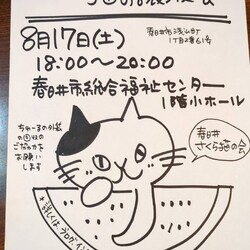 8月17日(土)
18:00〜20:00
春日井市浅山町
1丁目2番61号
春日井市総合福祉センター
1階小ホール
ちゅーるの外袋
の
ご協力を
お願い
します
春日井
さくら猫の会
*詳しくはブログ